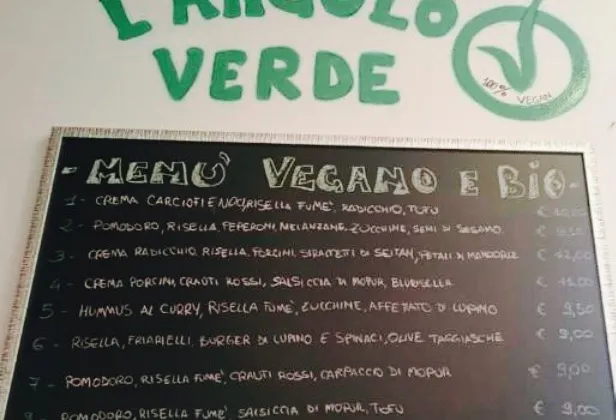 L'ANGOLO
VERDE
100% VEGAN
- MENÙ VEGANO E BIO -
1 - CREMA CARCIOFI E NOCI, RISELLA FUMÈ, RADICCHIO, TOFU €
2 - POMODORO, RISELLA, PEPERONI, MELANZANE, ZUCCHINE, SEMI DI SESAMO €
3 - CREMA RADICCHIO, RISELLA, PORCINI, STRACCETTI DI SEITAN, PETALI DI MANDORLE € 12,00
4 - CREMA PORCINI, CRAUTI ROSSI, SALSICCIA DI MOPUR, BLURISELLA € 11,00
5 - HUMMUS AL CURRY, RISELLA FUMÈ, ZUCCHINE, AFFETTATO DI LUPINO € 9,50
6 - RISELLA, FRIARIELLI, BURGER DI LUPINO E SPINACI, OLIVE TAGGIASCHE € 9,00
7 - POMODORO, RISELLA FUMÈ, CRAUTI ROSSI, CARPACCIO DI MOPUR € 9,00
POMODORO, RISELLA FUMÈ, SALSICCIA DI MOPUR, TOFU € 9,00